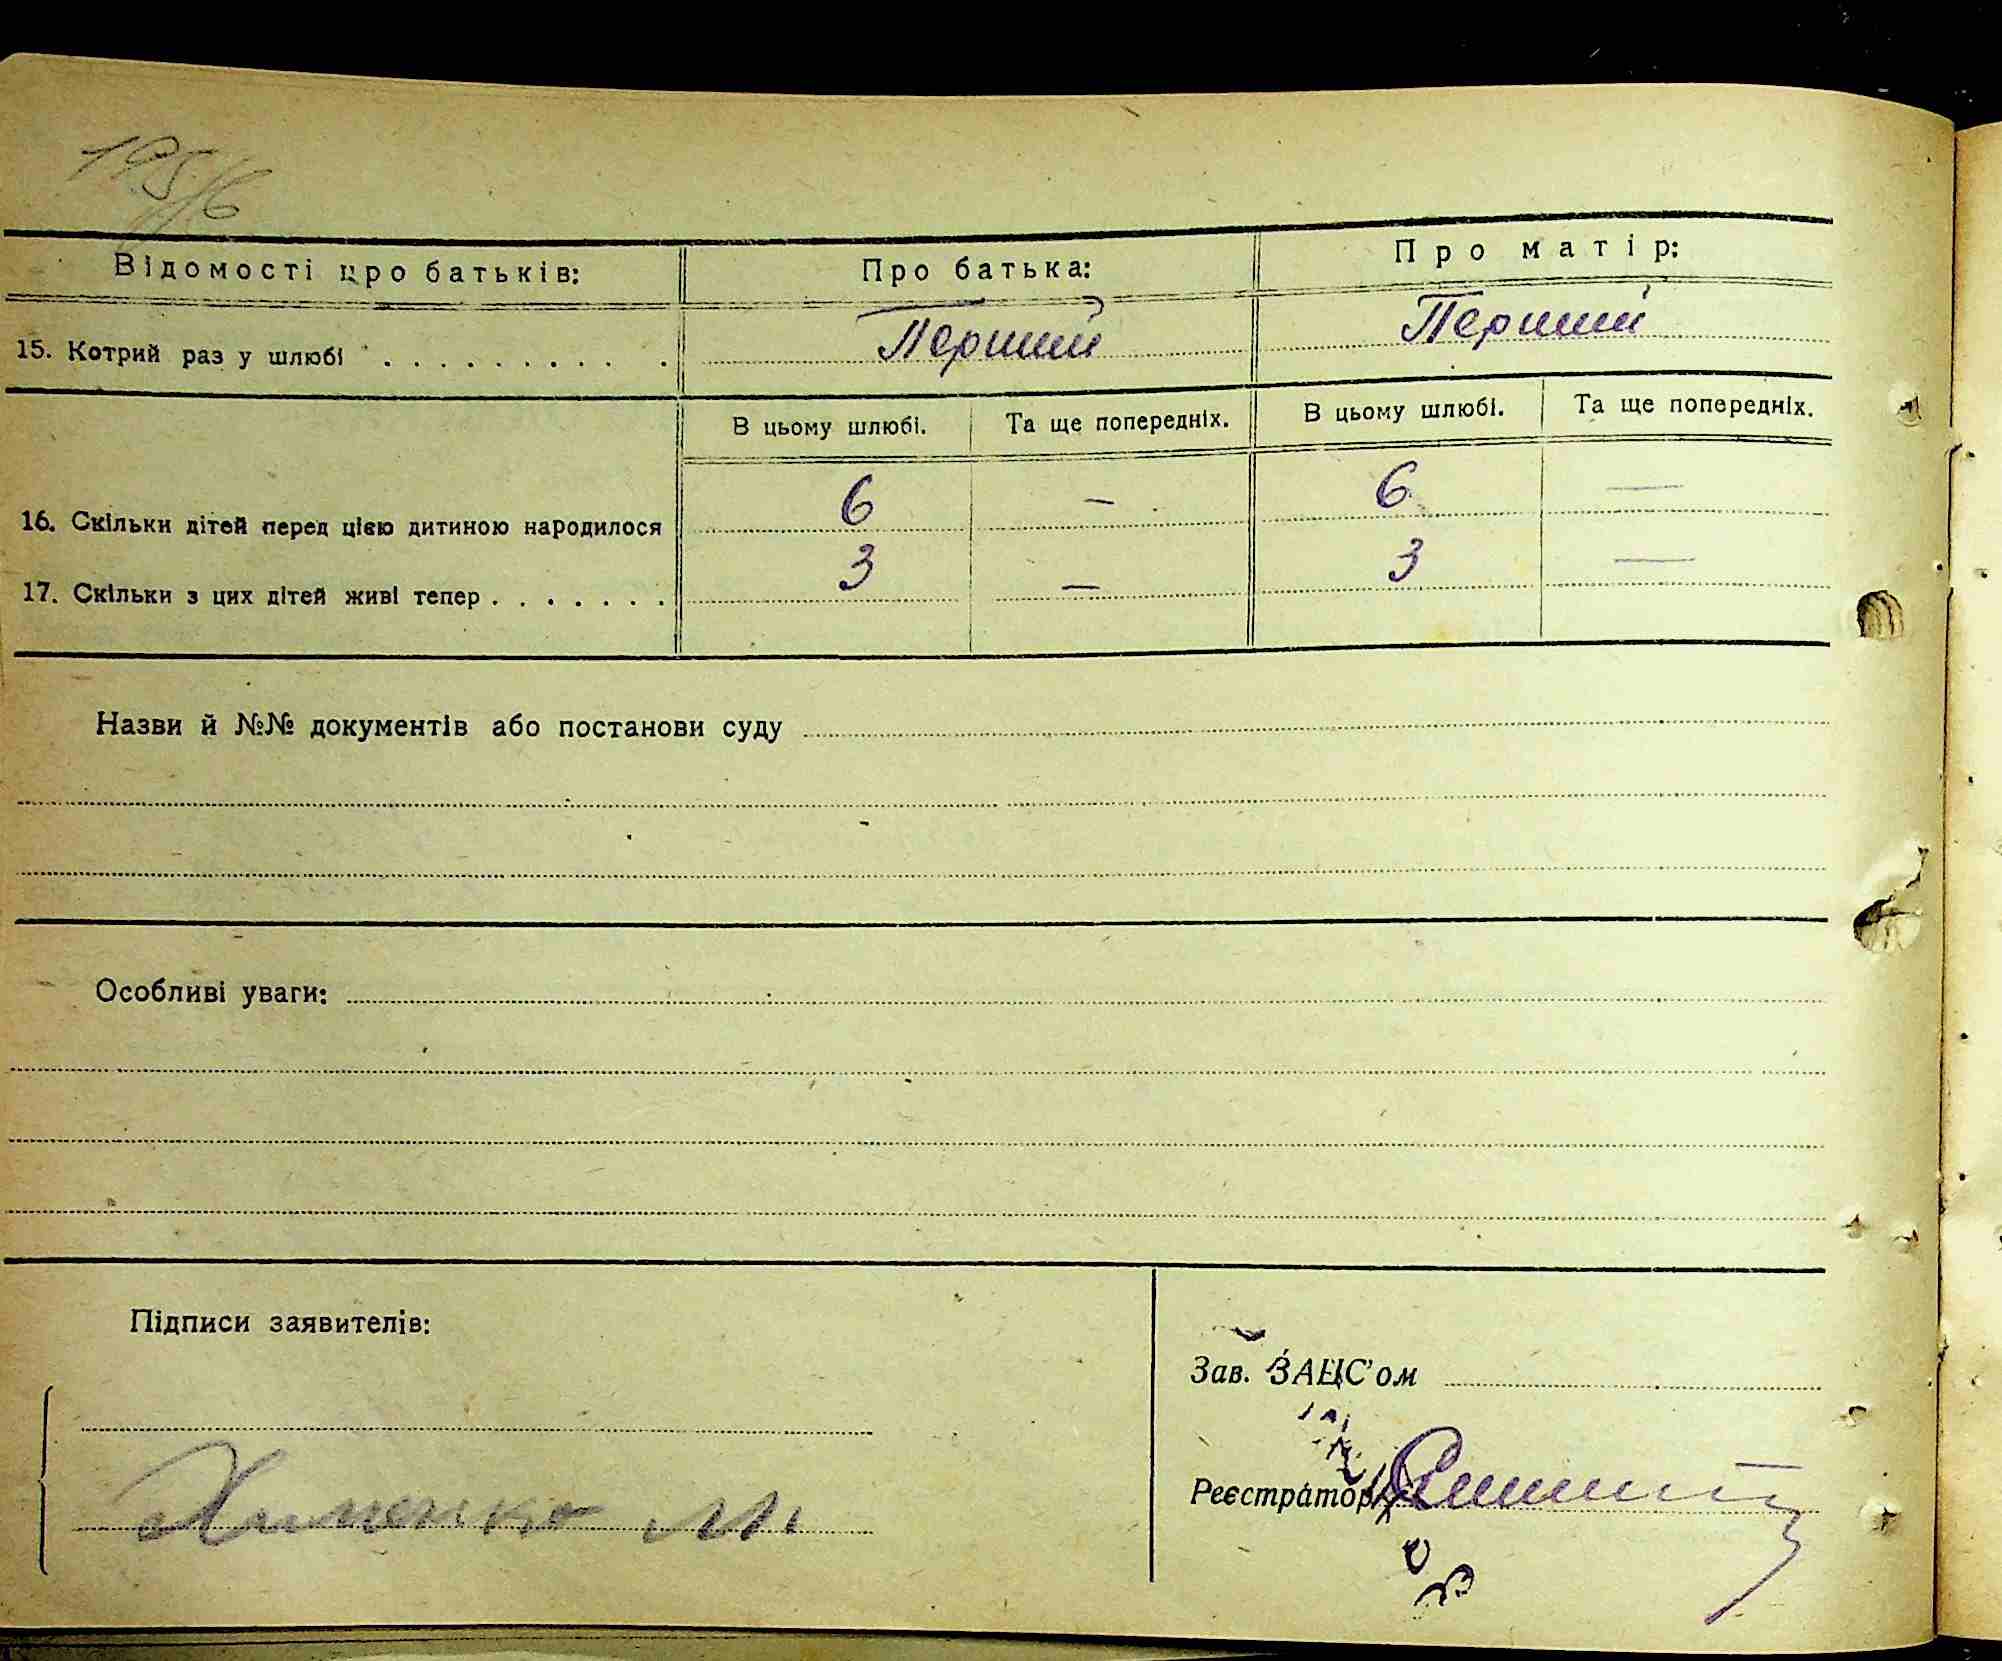 Відомості про батьків: Про батька: Про матір:
15. Котрий раз у шлюбі . . . . . . . . . . Перший Перший
В цьому шлюбі. Та ще попередніх. В цьому шлюбі. Та ще попередніх.
16. Скільки дітей перед цією дитиною народилося 6 — 6 —
17. Скільки з цих дітей живі тепер . . . . . . . 3 — 3 —
Назви й №№ документів або постанови суду
Особливі уваги:
Підписи заявителів:
Зав. ЗАЦС'ом
Реєстратор